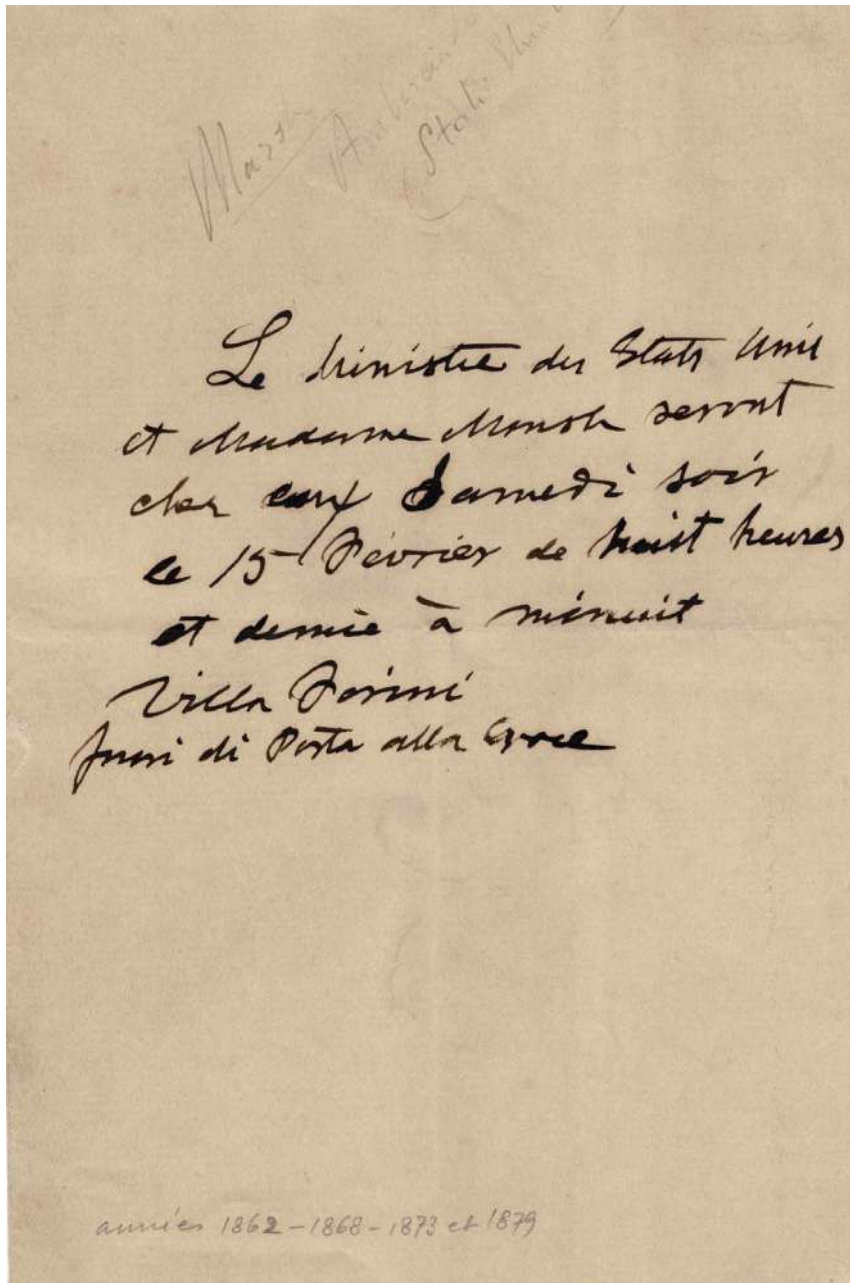 Marsh
États Unis
Le Ministre des Etats Unis
et Madame Marsh seront
chez eux Samedi soir
le 15 Février de huit heures
et demie à minuit
Villa Forini
fuori di Porta alla Croce
années 1862 - 1868 - 1873 et 1879